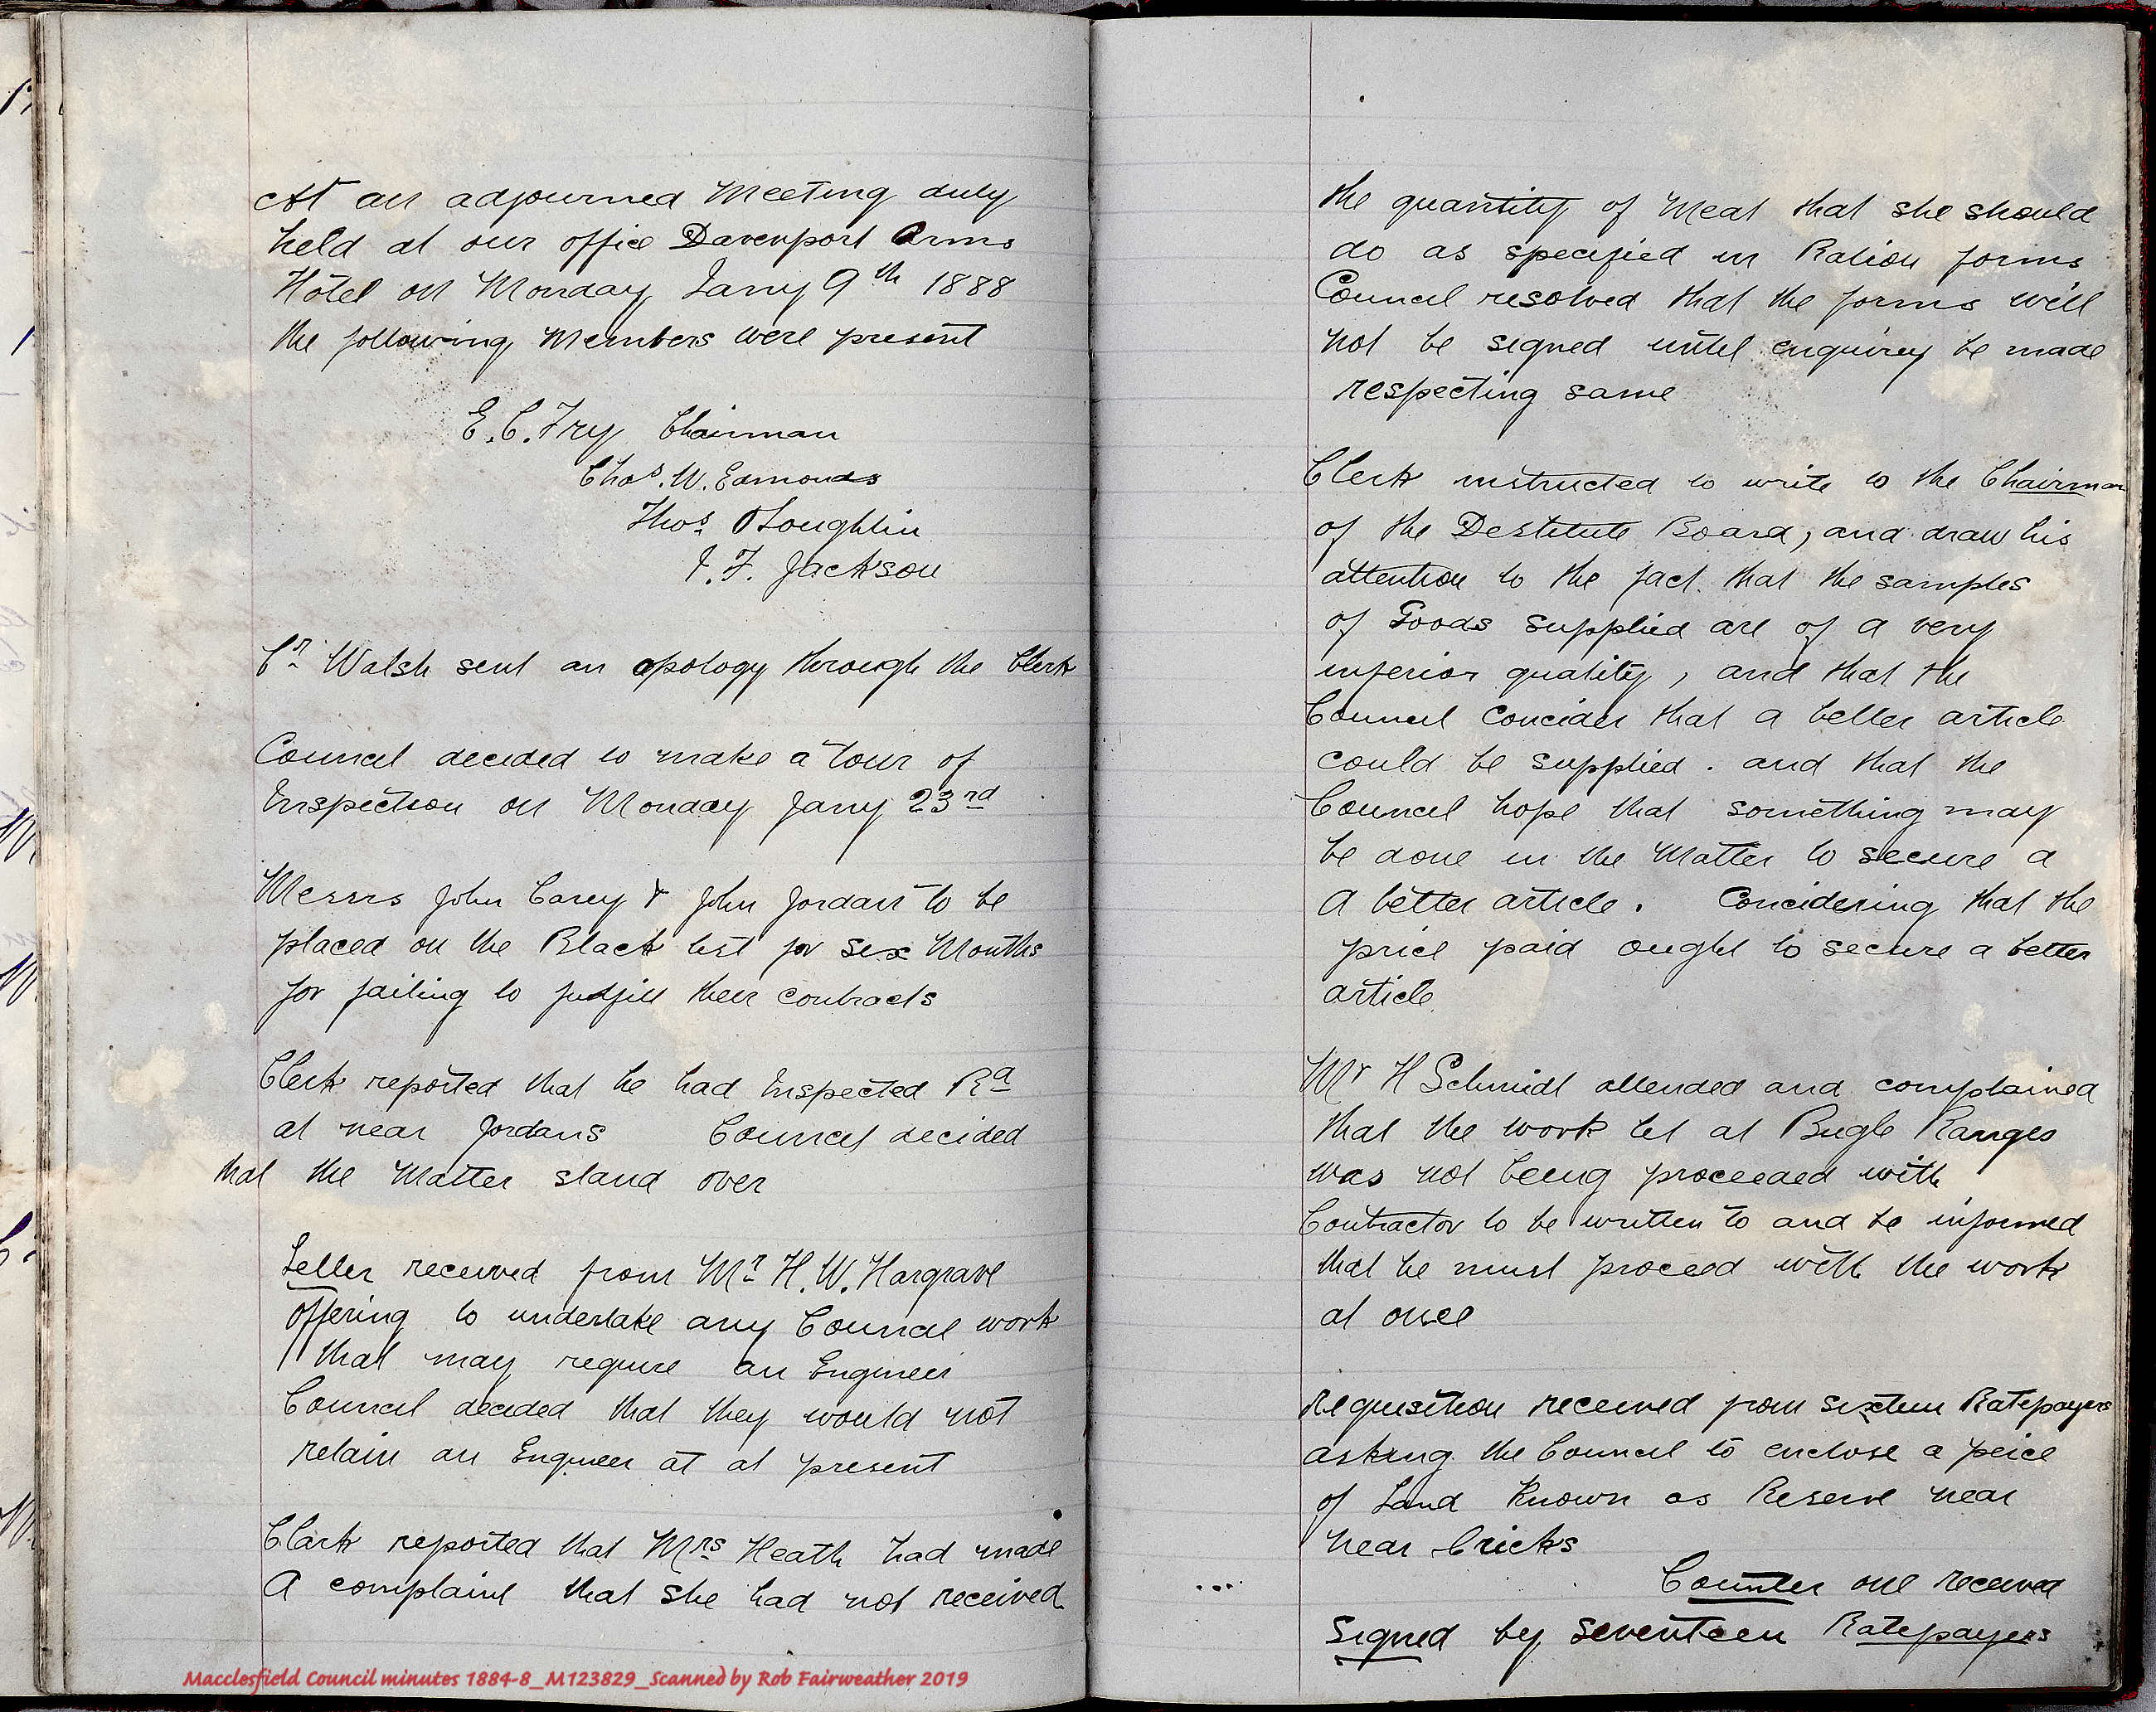 At an adjourned Meeting duly
held at our office Davenport Arms
Hotel on Monday Jany 9th 1888
the following Members were present
E. C. Fry Chairman
Chas. W. Edmonds
Thos O'Loughlin
J. F. Jackson
Cr Walsh sent an apology through the Clerk
Council decided to make a tour of
Inspection on Monday Jany 23rd
Messrs John Carey & John Jordan to be
placed on the Black list for six Months
for failing to fulfill their contracts
Clerk reported that he had Inspected Rd
at near Jordans Council decided
that the Matter stand over
Letter received from Mr H. W. Hargrave
offering to undertake any Council work
that may require an Engineer
Council decided that they would not
retain an Engineer at at present
Clark reported that Mrs Heath had made
A complaint that she had not received
the quantity of Meat that she should
do as specified in Ration forms
Council resolved that the forms will
not be signed until enquirey be made
respecting same
Clerk instructed to write to the Chairman
of the Destitute Board, and draw his
attention to the fact that the samples
of Goods supplied are of a very
inferior quality, and that the
Council concider that a better article
could be supplied. and that the
Council hope that something may
be done in the Matter to secure a
a better article. Concidering that the
price paid ought to secure a better
article
Mr H Schmidt attended and complained
that the work let at Bugle Ranges
was not being proceeded with
Contractor to be written to and be informed
that he must proceed with the work
at once
Requisition received from sixteen Ratepayers
asking the Council to enclose a peice
of Land Known as Reserve near
near Cricks
Counter one received
Signed by seventeen Ratepayers
Macclesfield Council minutes 1884-8_M123829_Scanned by Rob Fairweather 2019